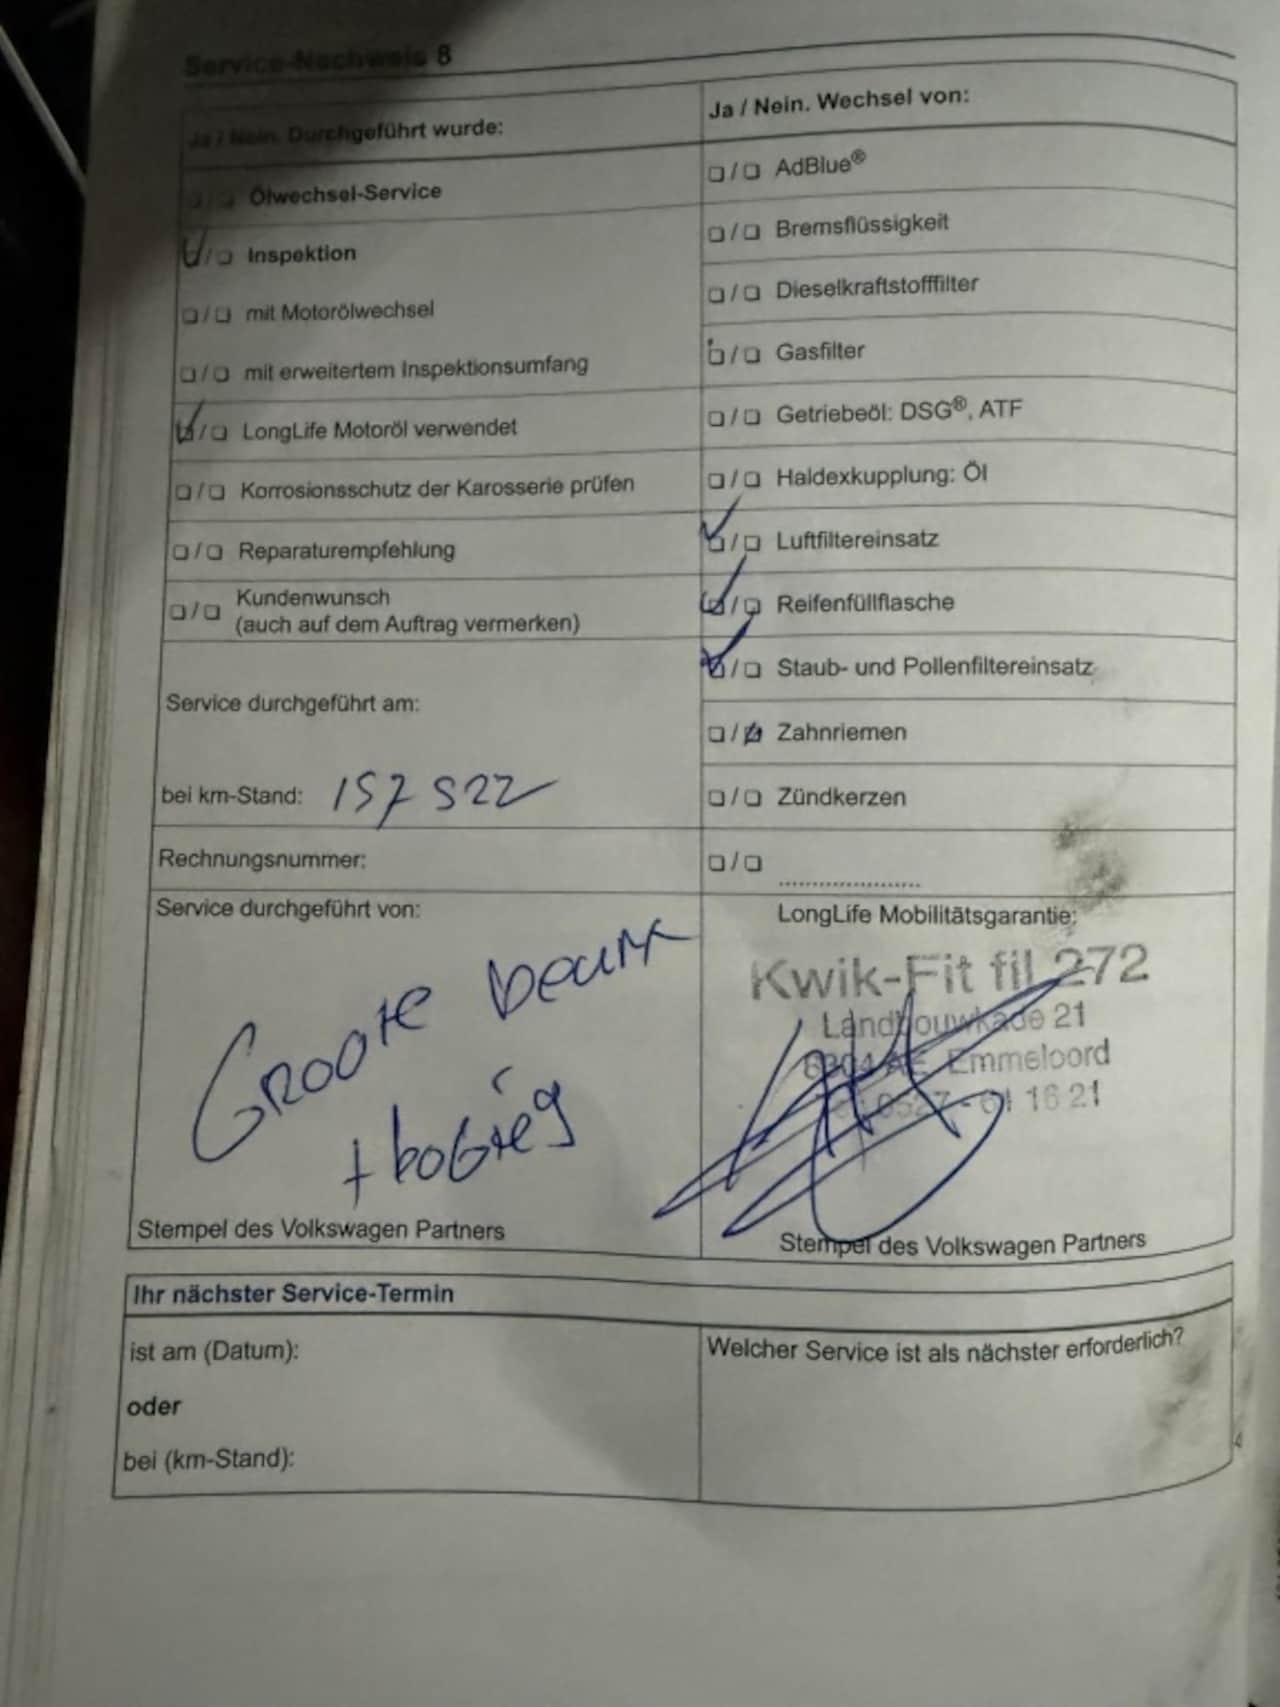 Service-Nachweis 8
Ja / Nein. Durchgeführt wurde:
Ölwechsel-Service
Inspektion
mit Motorölwechsel
mit erweitertem Inspektionsumfang
LongLife Motoröl verwendet
Korrosionsschutz der Karosserie prüfen
Reparaturempfehlung
Kundenwunsch
(auch auf dem Auftrag vermerken)
Service durchgeführt am:
bei km-Stand: 157 522
Rechnungsnummer:
Service durchgeführt von:
Groote beurt
+
Stempel des Volkswagen Partners
Ja / Nein. Wechsel von:
AdBlue®
Bremsflüssigkeit
Dieselkraftstofffilter
Gasfilter
Getriebeöl: DSG®, ATF
Haldexkupplung: Öl
Luftfiltereinsatz
Reifenfüllflasche
Staub- und Pollenfiltereinsatz
Zahnriemen
Zündkerzen
LongLife Mobilitätsgarantie:
Kwik-Fit fil 272
Landbouwkade 21
8304 AE Emmeloord
Tel 0527 - 61 16 21
Stempel des Volkswagen Partners
Ihr nächster Service-Termin
ist am (Datum):
oder
bei (km-Stand):
Welcher Service ist als nächster erforderlich?